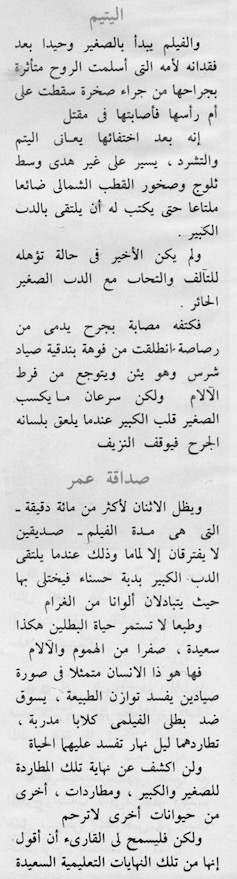 اليتيم
والفيلم يبدأ بالصغير وحيدا بعد
فقدانه لأمه التى أسلمت الروح متأثرة
بجراحها من جراء صخرة سقطت على
أم رأسها فأصابتها فى مقتل
إنه بعد اختفائها يعانى اليتم
والتشرد ، يسير على غير هدى وسط
ثلوج وصخور القطب الشمالى ضائعا
ملتاعا حتى يكتب له أن يلتقى بالدب
الكبير .
ولم يكن الأخير فى حالة تؤهله
للتآلف والتحاب مع الدب الصغير
الحائر .
فكتفه مصابة بجرح يدمى من
رصاصة انطلقت من فوهة بندقية صياد
شرس وهو يئن ويتوجع من فرط
الآلام ولكن سرعان مايكسب
الصغير قلب الكبير عندما يلعق بلسانه
الجرح فيوقف النزيف
صداقة عمر
ويظل الاثنان لأكثر من مائة دقيقة ـ
التى هى مدة الفيلم ـ صديقين
لا يفترقان إلا لماما وذلك عندما يلتقى
الدب الكبير بدبة حسناء فيختلى بها
حيث يتبادلان ألوانا من الغرام
وطبعا لا تستمر حياة البطلين هكذا
سعيدة ، صفرا من الهموم والآلام
فها هو ذا الانسان متمثلا فى صورة
صيادين يفسد توازن الطبيعة ، يسوق
ضد بطلى الفيلمى كلابا مدربة ،
تطاردهما ليل نهار تفسد عليهما الحياة
ولن اكشف عن نهاية تلك المطاردة
للصغير والكبير ، ومطاردات ، أخرى
من حيوانات أخرى لاترحم
ولكن فليسمح لى القارىء أن أقول
إنها من تلك النهايات التعليمية السعيدة